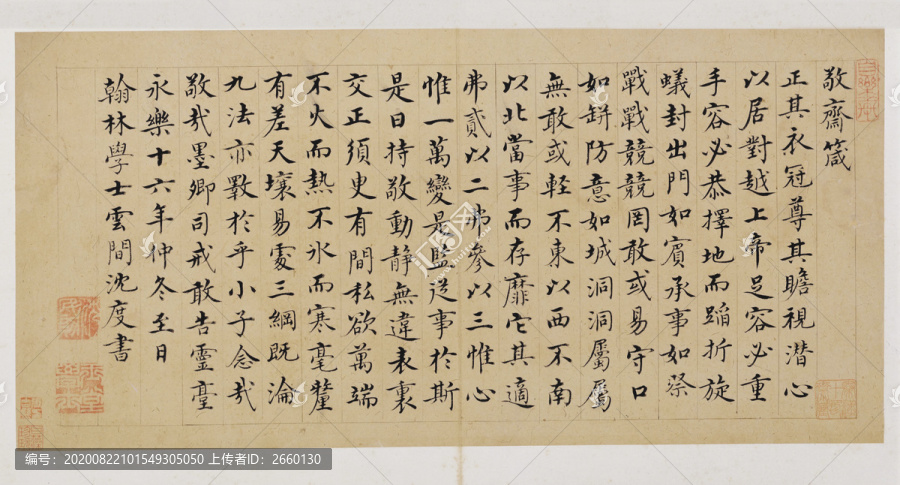 敬齋箴
正其衣冠尊其瞻視潜心
以居對越上帝足容必重
手容必恭擇地而蹈折旋
蟻封出門如賓承事如祭
戰戰兢兢罔敢或易守口
如缾防意如城洞洞屬屬
無敢或輕不東以西不南
以北當事而存靡它其適
弗貳以二弗參以三惟心
惟一萬變是監從事於斯
是曰持敬動静無違表裏
交正須臾有間私欲萬端
不火而熱不氷而寒毫釐
有差天壤易處三綱既淪
九法亦斁於乎小子念哉
敬哉墨卿司戒敢告靈臺
永樂十六年仲冬至日
翰林學士雲間沈度書
编号：20200822101549305050 上传者ID：2660130